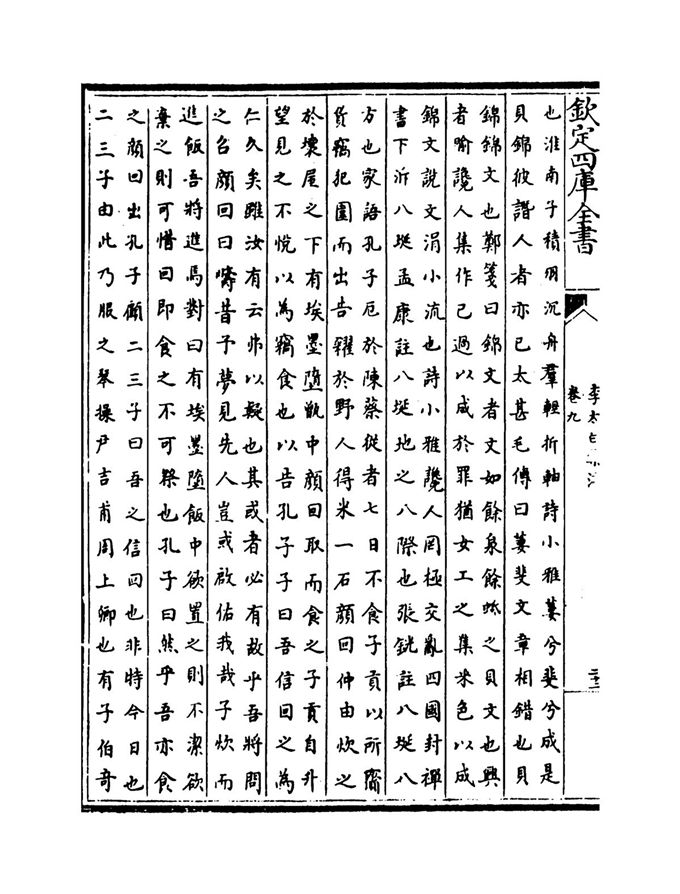 欽定四庫全書
李太白集注
卷九
也淮南子積羽沉舟羣輕折軸詩小雅萋兮斐兮成是
貝錦彼譖人者亦已太甚毛傳曰萋斐文章相錯也貝
錦錦文也鄭箋曰錦文者文如餘泉餘蚳之貝文也興
者喻讒人集作己過以成於罪猶女工之集采色以成
錦文說文涓小流也詩小雅讒人罔極交亂四國封禪
書下泝八埏孟康註八埏地之八際也張銑註八埏八
方也家語孔子厄於陳蔡從者七日不食子貢以所齎
貨竊犯圍而出告糴於野人得米一石顔回仲由炊之
於壞屋之下有埃墨墮甑中顔回取而食之子貢自井
望見之不悅以為竊食也以告孔子子曰吾信回之為
仁久矣雖汝有云弗以疑也其或者必有故乎吾將問
之召顔回曰疇昔予夢見先人豈或啟佑我哉子炊而
進飯吾將進焉對曰有埃墨墮飯中欲置之則不潔欲
棄之則可惜回即食之不可祭也孔子曰然乎吾亦食
之顔回出孔子顧二三子曰吾之信回也非特今日也
二三子由此乃服之琴操尹吉甫周上卿也有子伯奇